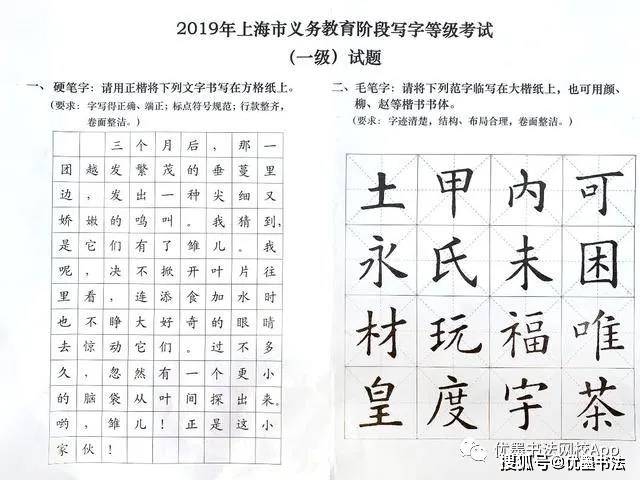 2019年上海市义务教育阶段写字等级考试
(一级)试题
一、硬笔字：请用正楷将下列文字书写在方格纸上。
(要求：字写得正确、端正；标点符号规范；行款整齐，
卷面整洁。)
三个月后，那一
团越发繁茂的垂蔓里
边，发出一种尖细又
娇嫩的鸣叫。我猜到，
是它们有了雏儿。我
呢，决不掀开叶片往
里看，连添食加水时
也不睁大好奇的眼睛
去惊动它们。过不多
久，忽然有一个更小
的脑袋从叶间探出来。
哟，雏儿！正是这小
家伙！
二、毛笔字：请将下列范字临写在大楷纸上，也可用颜、
柳、赵等楷书书体。
(要求：字迹清楚，结构、布局合理，卷面整洁。)
土甲内可
永氏未困
材玩福唯
皇度字茶
优墨书法网校App
搜狐号@优墨书法